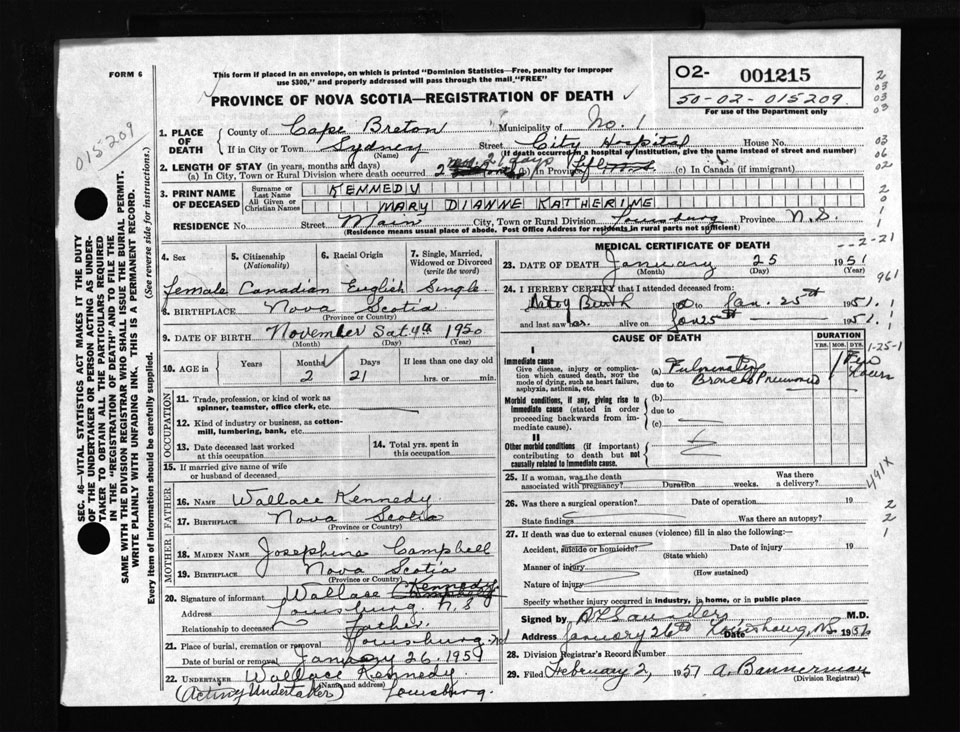 FORM 6
This form if placed in an envelope, on which is printed "Dominion Statistics—Free, penalty for improper
use $300," and properly addressed will pass through the mail, "FREE"
PROVINCE OF NOVA SCOTIA—REGISTRATION OF DEATH
02- 001215
50-02-015209
For use of the Department only
015209
1. PLACE OF DEATH
County of Cape Breton Municipality of No. 1
If in City or Town Sydney Street City Hospital House No.
(Name) (If death occurred in a hospital or institution, give the name instead of street and number)
2. LENGTH OF STAY (in years, months and days)
(a) In City, Town or Rural Division where death occurred 2 mos. 21 days (b) In Province Life (c) In Canada (if immigrant)
3. PRINT NAME OF DECEASED
Surname or Last Name KENNEDY
All Given or Christian Names MARY DIANNE KATHERINE
RESIDENCE No. Street Main City, Town or Rural Division Louisburg Province N.S.
(Residence means usual place of abode. Post Office Address for residents in rural parts not sufficient)
4. Sex 5. Citizenship (Nationality) 6. Racial Origin 7. Single, Married, Widowed or Divorced (write the word)
female Canadian English Single
8. BIRTHPLACE Nova Scotia
(Province or Country)
9. DATE OF BIRTH November Sat. 4th 1950
(Month) (Day) (Year)
10. AGE in Years Months Days If less than one day old
2 21 hrs. or min.
OCCUPATION
11. Trade, profession, or kind of work as
spinner, teamster, office clerk, etc.
12. Kind of industry or business, as cotton-
mill, lumbering, bank, etc.
13. Date deceased last worked at this occupation
14. Total yrs. spent in this occupation
15. If married give name of wife
or husband of deceased
FATHER
16. NAME Wallace Kennedy
17. BIRTHPLACE Nova Scotia
(Province or Country)
MOTHER
18. MAIDEN NAME Josephine Campbell
19. BIRTHPLACE Nova Scotia
(Province or Country)
20. Signature of informant Wallace Kennedy
Address Louisburg N.S
Relationship to deceased Father
21. Place of burial, cremation or removal Louisburg
Date of burial or removal January 26. 1951
22. UNDERTAKER Wallace Kennedy
(Name and address)
(Acting Undertaker) Louisburg.
MEDICAL CERTIFICATE OF DEATH
23. DATE OF DEATH January 25 1951
(Month) (Day) (Year)
24. I HEREBY CERTIFY that I attended deceased from:
Birth to Jan. 25th 1951.
and last saw her alive on Jan 25th 1951.
CAUSE OF DEATH
DURATION
YRS. MOS. DYS.
I
Immediate cause
Give disease, injury or complication which caused death, not the mode of dying, such as heart failure, asphyxia, asthenia, etc.
(a) Fulminating
due to Broncho Pneumonia
Few hours
Morbid conditions, if any, giving rise to immediate cause (stated in order proceeding backwards from immediate cause).
(b)
due to
(c)
II
Other morbid conditions (if important) contributing to death but not causally related to immediate cause.
25. If a woman, was the death associated with pregnancy? Duration weeks. Was there a delivery?
26. Was there a surgical operation? Date of operation 19
State findings Was there an autopsy?
27. If death was due to external causes (violence) fill in also the following:
Accident, suicide or homicide? Date of injury 19
(State which)
Manner of injury
(How sustained)
Nature of injury
Specify whether injury occurred in industry, in home, or in public place
Signed by M.D.
Address January 26th Date Louisbourg, NS 1951
28. Division Registrar's Record Number
29. Filed February 2, 1951 A. Bannerman
(Division Registrar)
SEC. 46—VITAL STATISTICS ACT MAKES IT THE DUTY
OF THE UNDERTAKER OR PERSON ACTING AS UNDER-
TAKER TO OBTAIN ALL THE PARTICULARS REQUIRED
IN THE "REGISTRATION OF DEATH" AND TO FILE THE
SAME WITH THE DIVISION REGISTRAR WHO SHALL ISSUE THE BURIAL PERMIT.
WRITE PLAINLY WITH UNFADING INK. THIS IS A PERMANENT RECORD.
Every item of information should be carefully supplied. (See reverse side for instructions.)
2
03
03
03
03
06
02
2
0
1
1
--2-21
961
1
1
1-25-1
491X
2
2
1